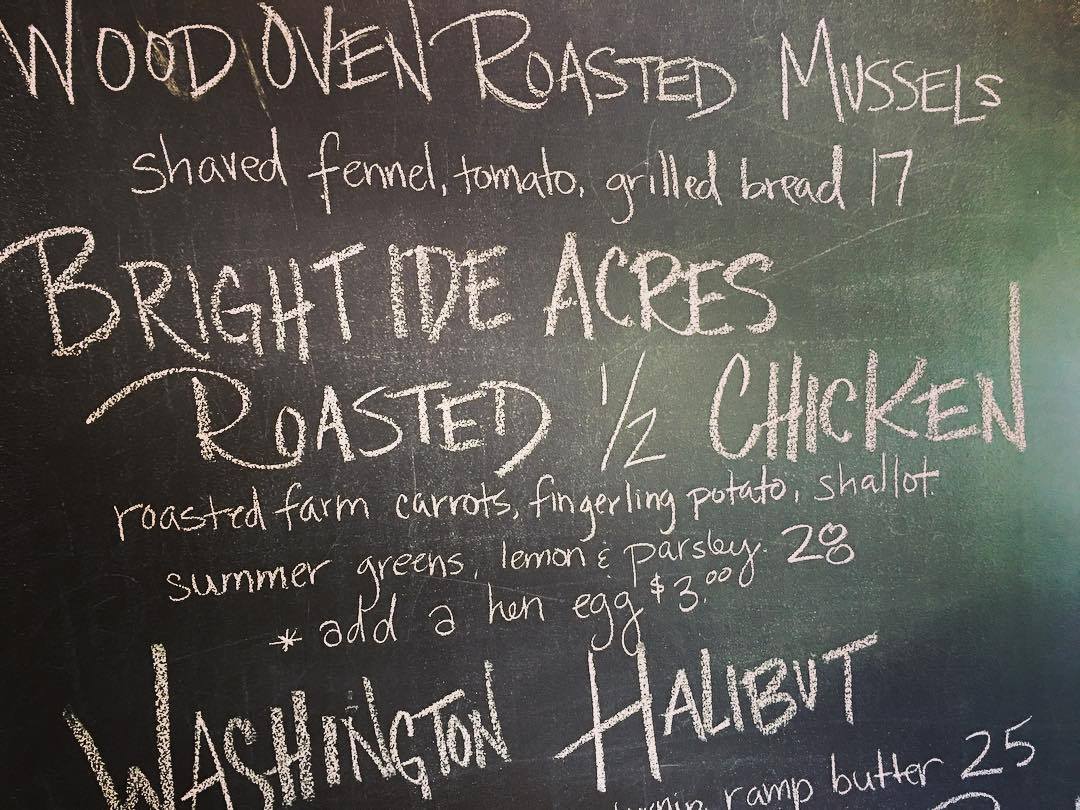 WOOD OVEN ROASTED MUSSELS
shaved fennel, tomato, grilled bread 17
BRIGHTIDE ACRES
ROASTED 1/2 CHICKEN
roasted farm carrots, fingerling potato, shallot.
summer greens, lemon & parsley. 28
* add a hen egg $3.00
WASHINGTON HALIBUT
turnip, ramp butter 25